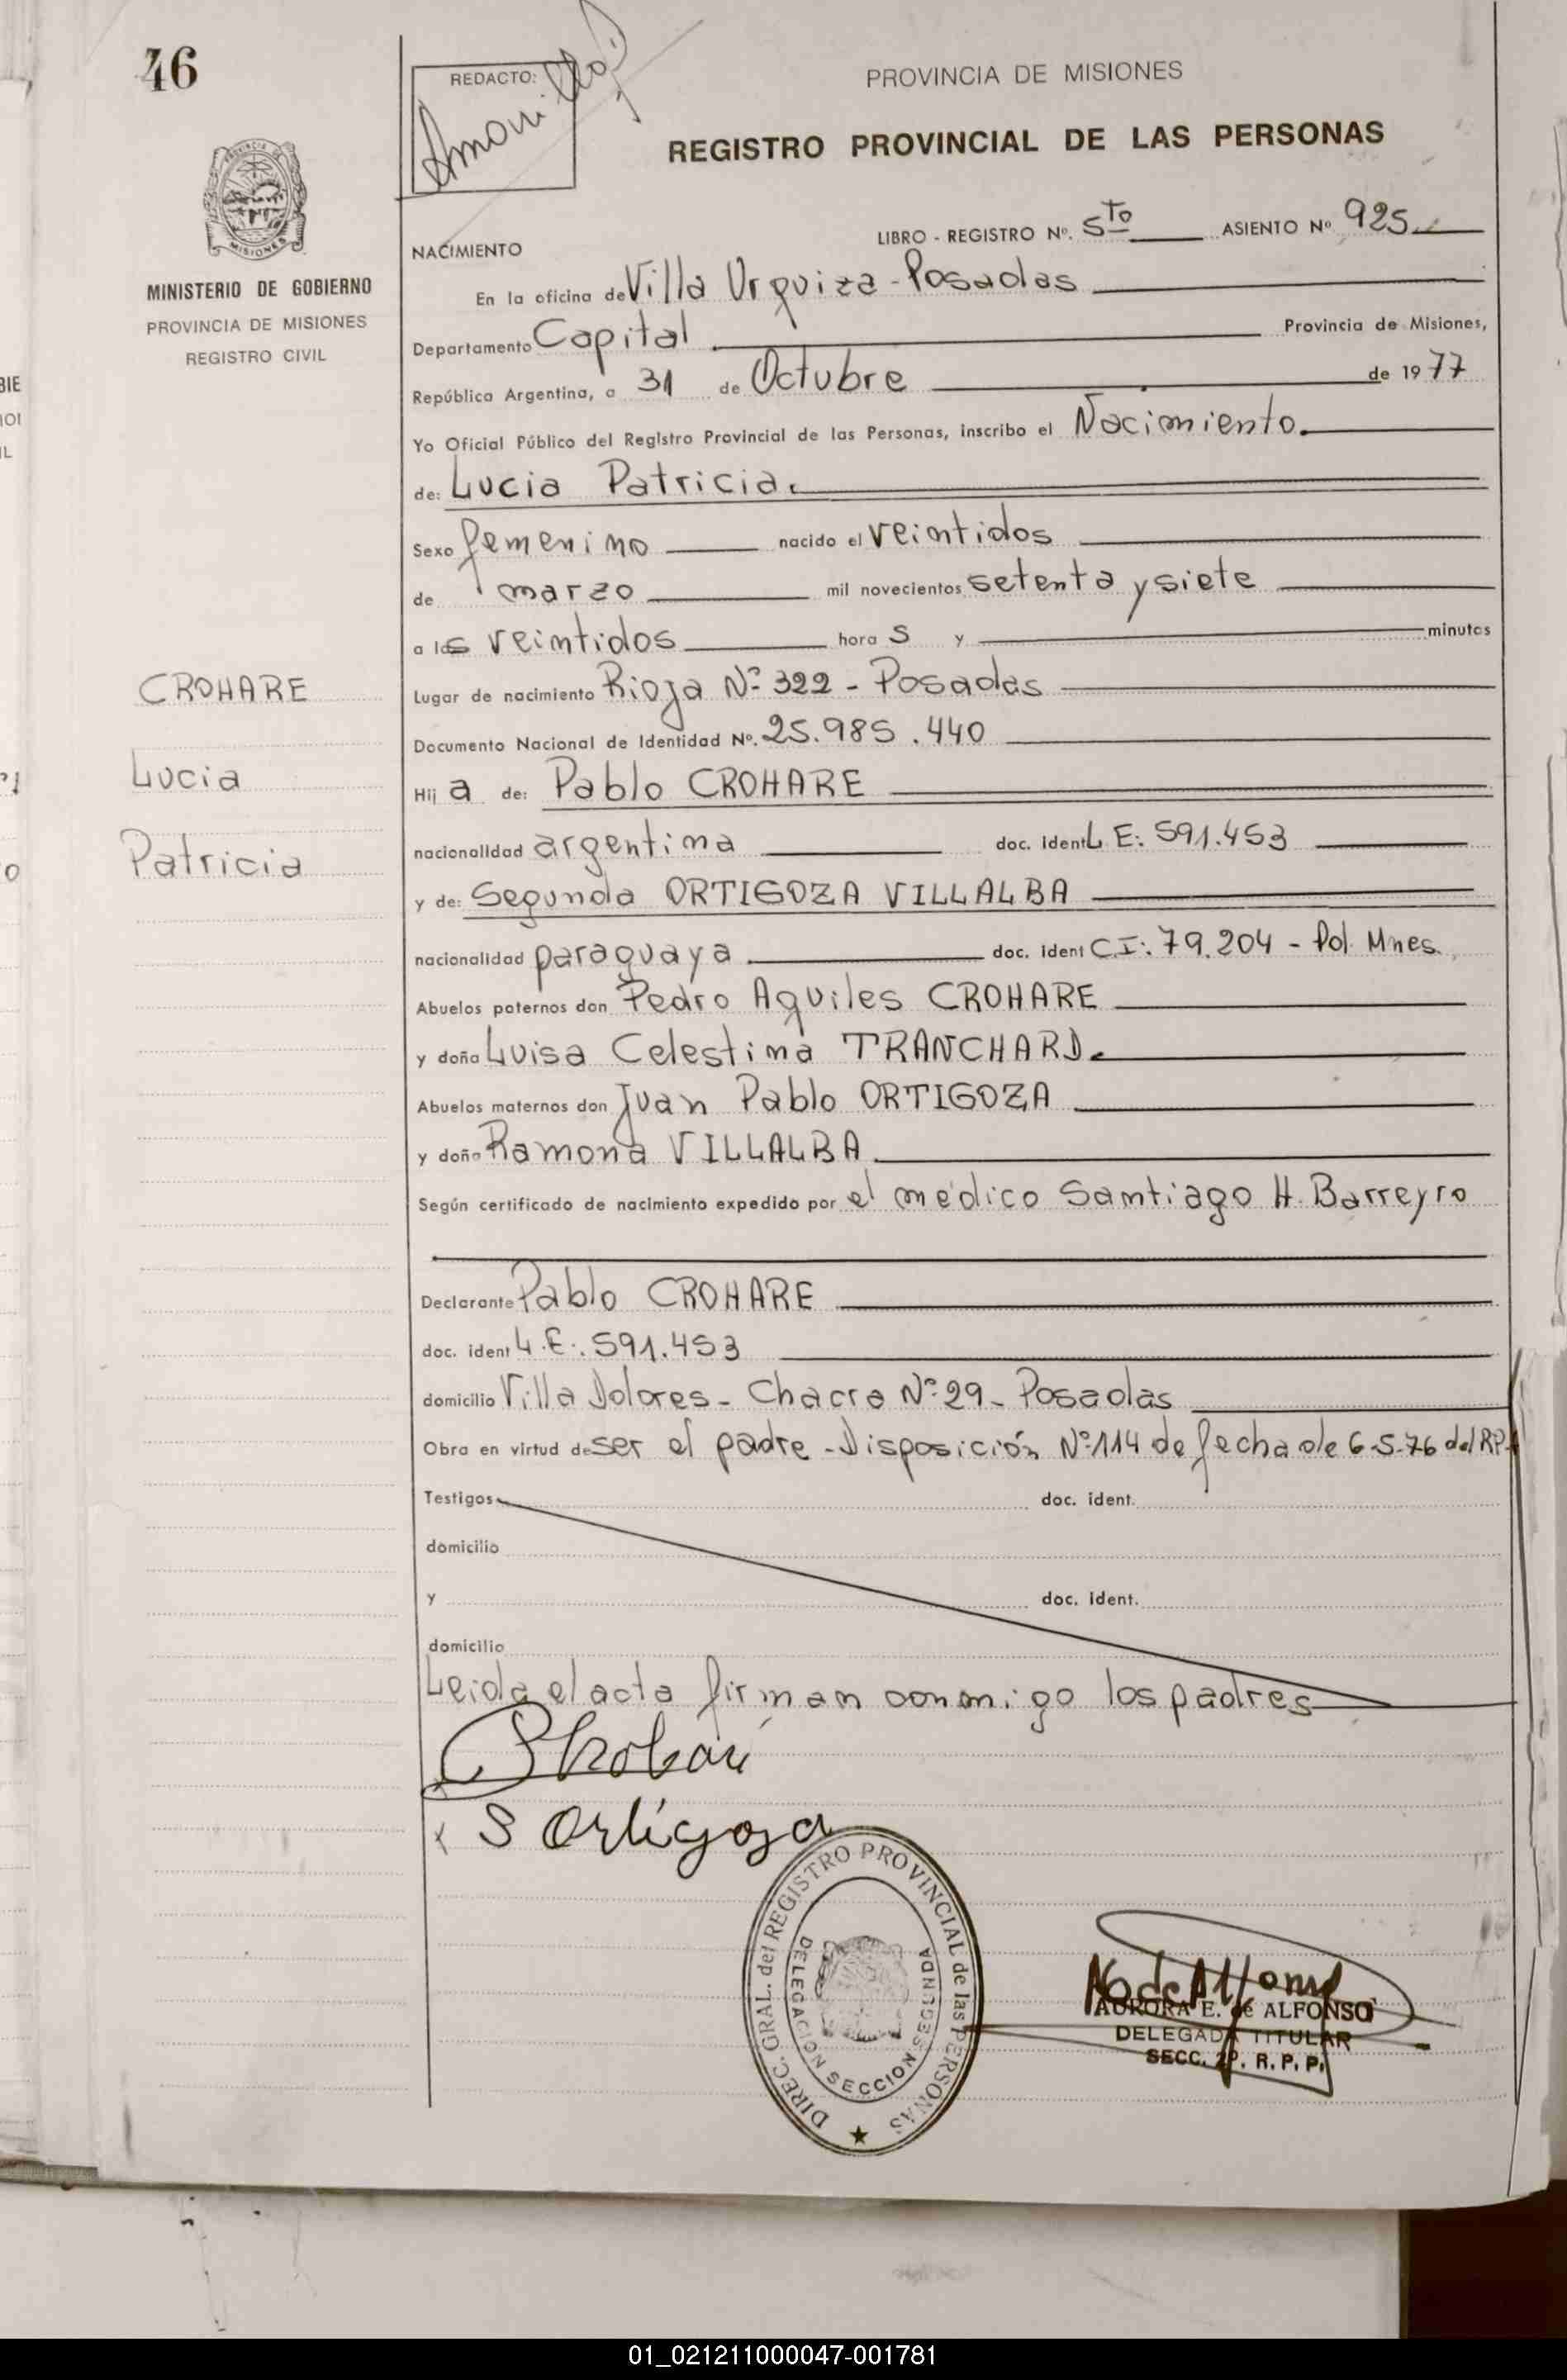 46
REDACTO:
PROVINCIA DE MISIONES
REGISTRO PROVINCIAL DE LAS PERSONAS
LIBRO - REGISTRO Nº. 5to ASIENTO Nº 925
NACIMIENTO
MISIONES
MINISTERIO DE GOBIERNO
PROVINCIA DE MISIONES
REGISTRO CIVIL
En la oficina de Villa Urquiza - Posadas
Departamento Capital Provincia de Misiones,
República Argentina, a 31 de Octubre de 1977
Yo Oficial Público del Registro Provincial de las Personas, inscribo el Nacimiento.
de: Lucia Patricia.
Sexo femenino nacido el veintidos
de marzo mil novecientos setenta y siete
a las veintidos horas y minutos
CROHARE
Lucia
Patricia
Lugar de nacimiento Rioja Nº 322 - Posadas
Documento Nacional de Identidad Nº. 25.985.440
Hija de: Pablo CROHARE
nacionalidad argentina doc. ident L E: 591.453
y de: Segunda ORTIGOZA VILLALBA
nacionalidad paraguaya doc. ident C.I: 79.204 - Pol. Mnes.
Abuelos paternos don Pedro Aquiles CROHARE
y doña Luisa Celestina TRANCHARD.
Abuelos maternos don Juan Pablo ORTIGOZA
y doña Ramona VILLALBA
Según certificado de nacimiento expedido por el médico Santiago H. Barreyro
Declarante Pablo CROHARE
doc. ident L.E.: 591.453
domicilio Villa Dolores - Chacra Nº 29 - Posadas
Obra en virtud de ser el padre - Disposición Nº 114 de fecha de 6-5-76 del RP.
Testigos doc. ident.
domicilio
y doc. ident.
domicilio
Leida el acta firman conmigo los padres
S Ortigoza
DIREC. GRAL. del REGISTRO PROVINCIAL de las PERSONAS
DELEGACION SECCION SEGUNDA
AURORA E. de ALFONSO
DELEGADA TITULAR
SECC. 2ª. R. P. P.
01_021211000047-001781